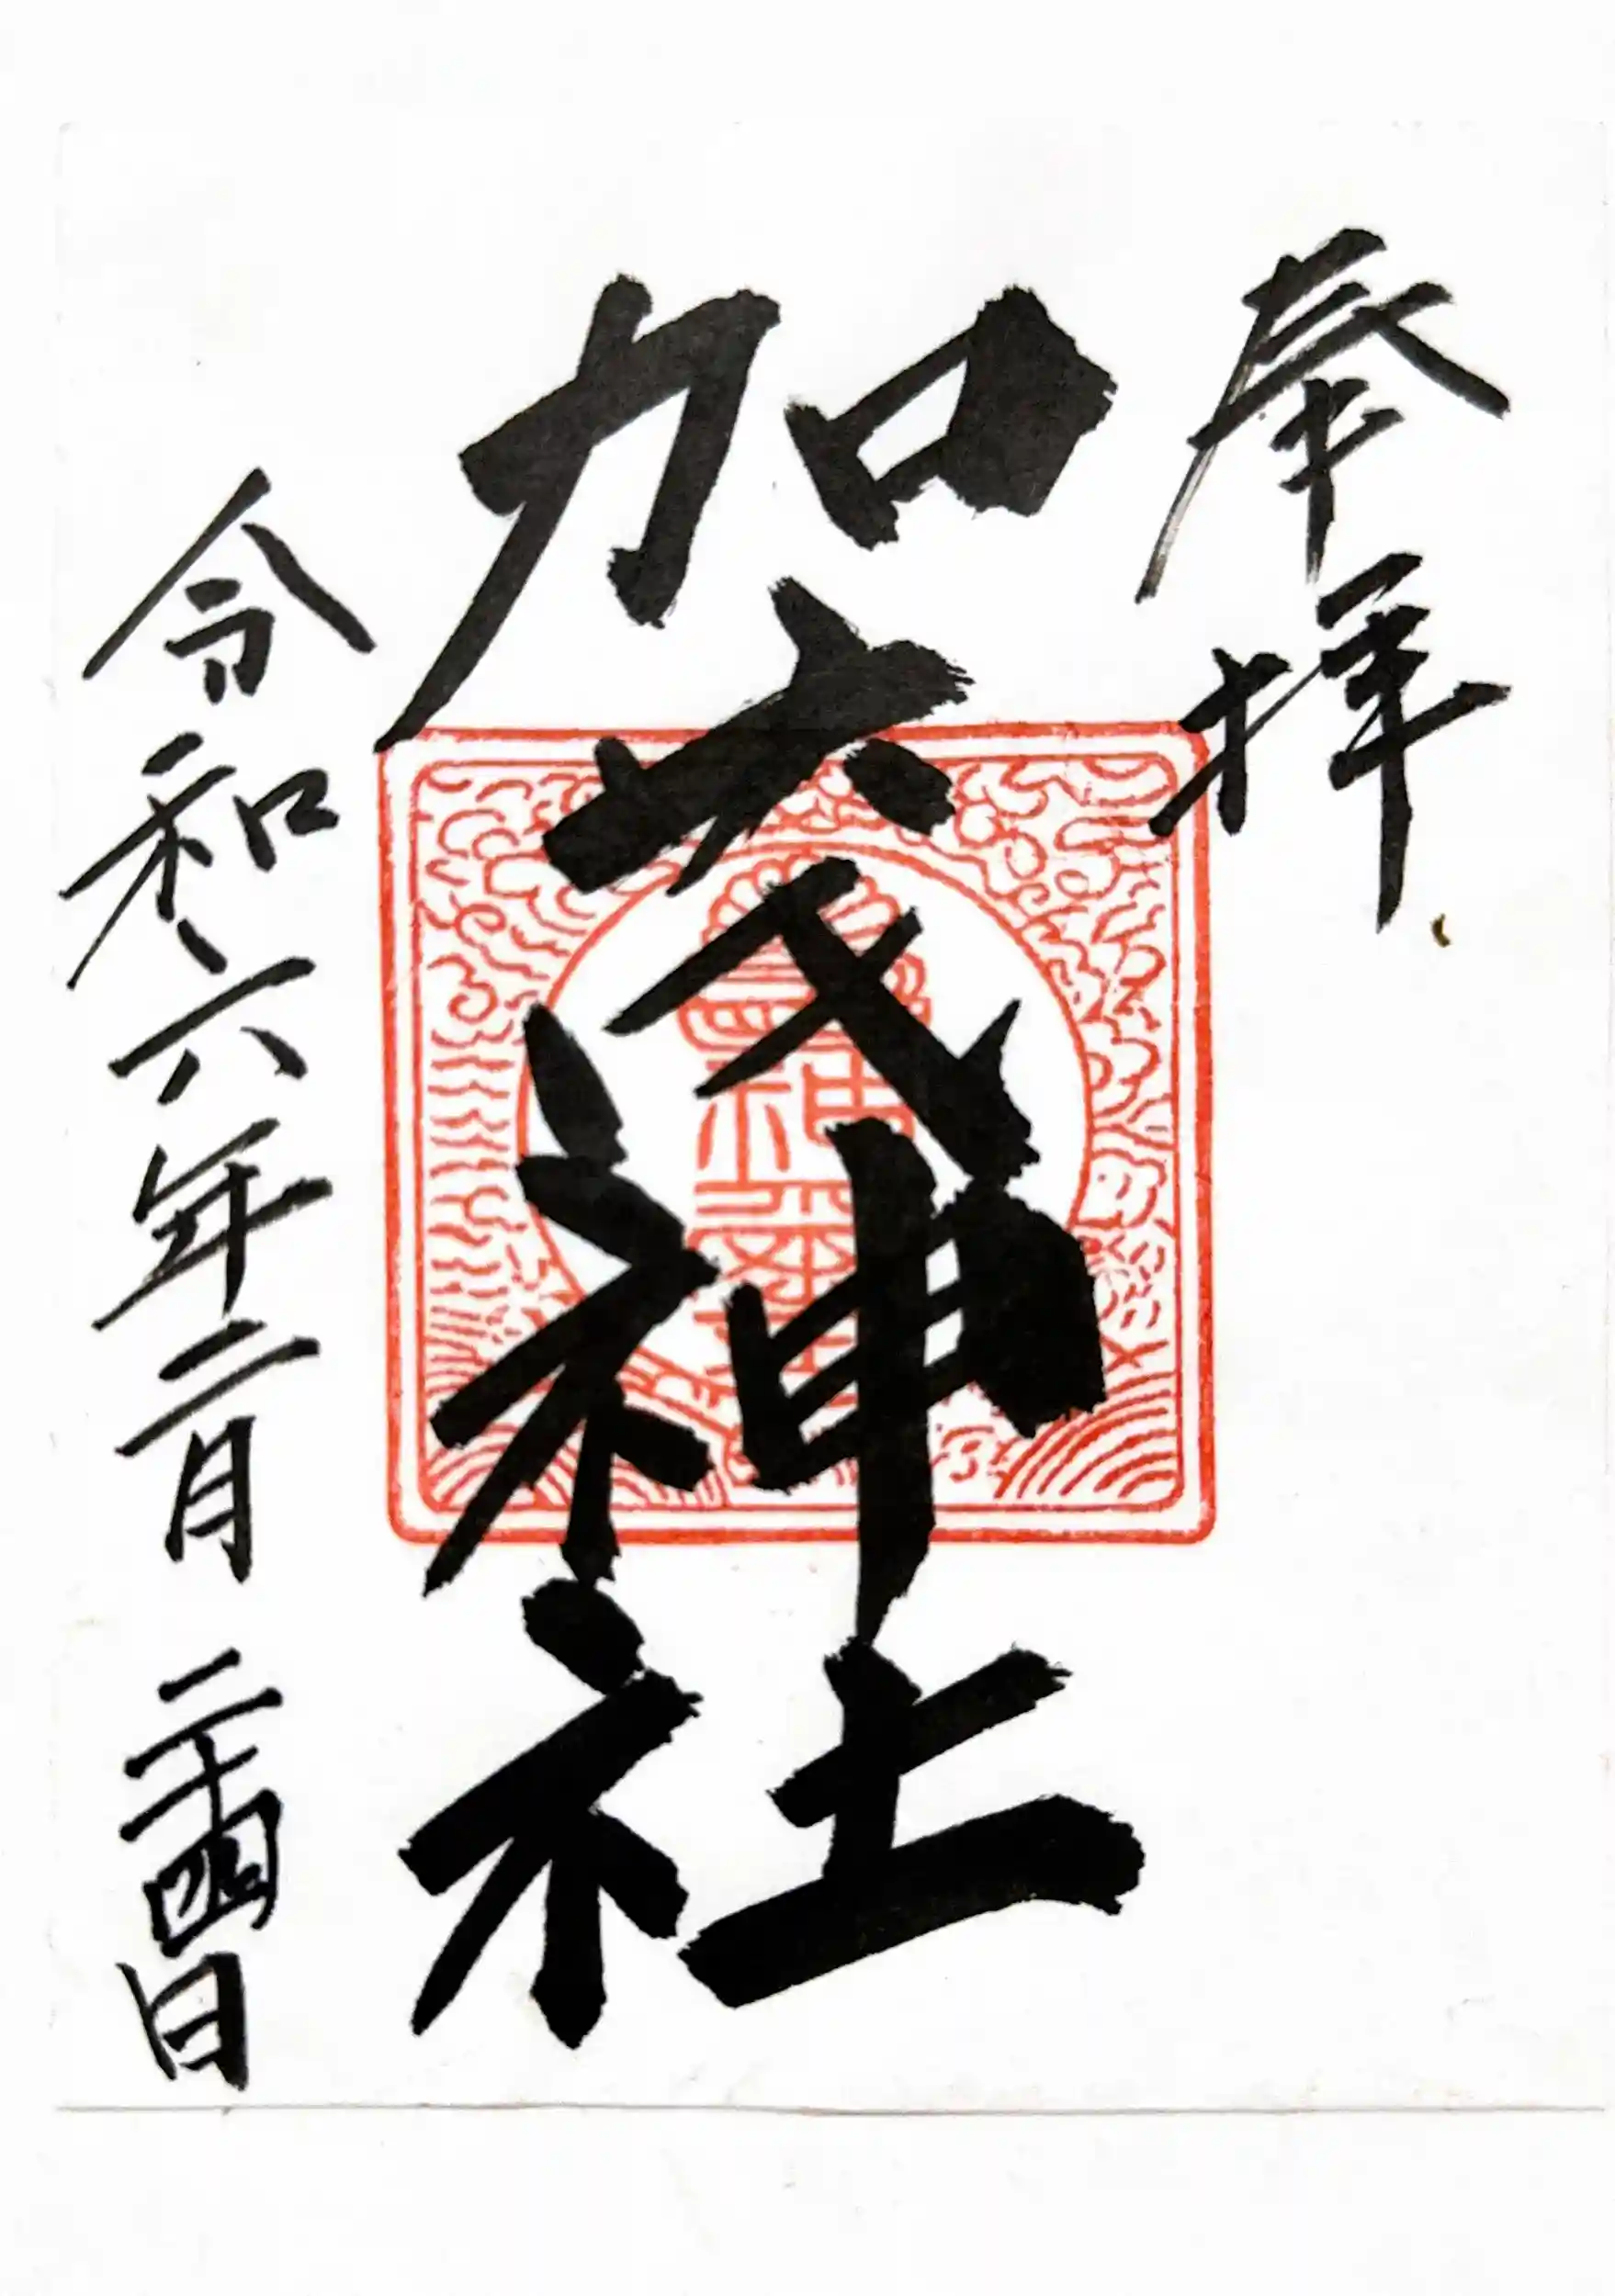 奉拝
加茂神社
令和六年二月二十四日